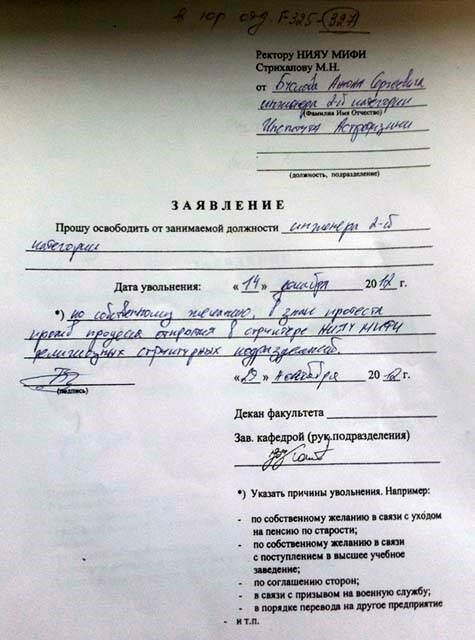 в юр отд. F-325-(327)
Ректору НИЯУ МИФИ
Стриханову М.Н.
от Буслова Антона Сергеевича
инженера 2-й категории
(Фамилия Имя Отчество)
Института Астрофизики
(должность, подразделение)
ЗАЯВЛЕНИЕ
Прошу освободить от занимаемой должности инженера 2-й
категории
Дата увольнения: «14» декабря 2012 г.
*) по собственному желанию, в знак протеста
против процесса открытия в структуре НИЯУ МИФИ
религиозных структурных подразделений.
«29» ноября 2012 г.
(подпись)
Декан факультета
Зав. кафедрой (рук.подразделения)
*) Указать причины увольнения. Например:
- по собственному желанию в связи с уходом
на пенсию по старости;
- по собственному желанию в связи
с поступлением в высшее учебное
заведение;
- по соглашению сторон;
- в связи с призывом на военную службу;
- в порядке перевода на другое предприятие
- и т.п.